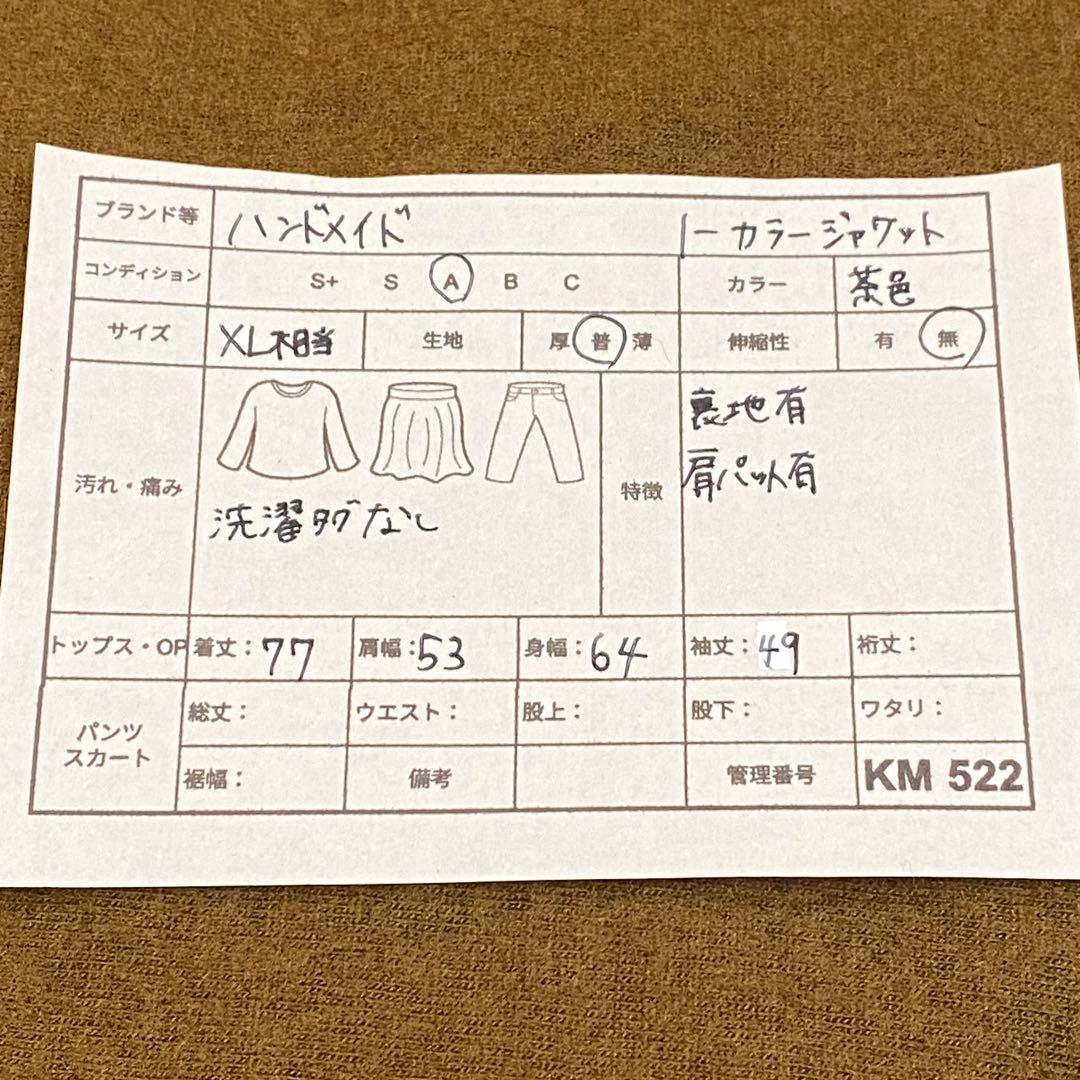 ブランド等 ハンドメイド ノーカラージャケット
コンディション S+ S A B C カラー 茶色
サイズ XL相当 生地 厚 普 薄 伸縮性 有 無
汚れ・痛み 洗濯タグなし 特徴 裏地有
肩パット有
トップス・OP 着丈：77 肩幅：53 身幅：64 袖丈：49 裄丈：
パンツ
スカート
総丈： ウエスト： 股上： 股下： ワタリ：
裾幅： 備考 管理番号 KM 522